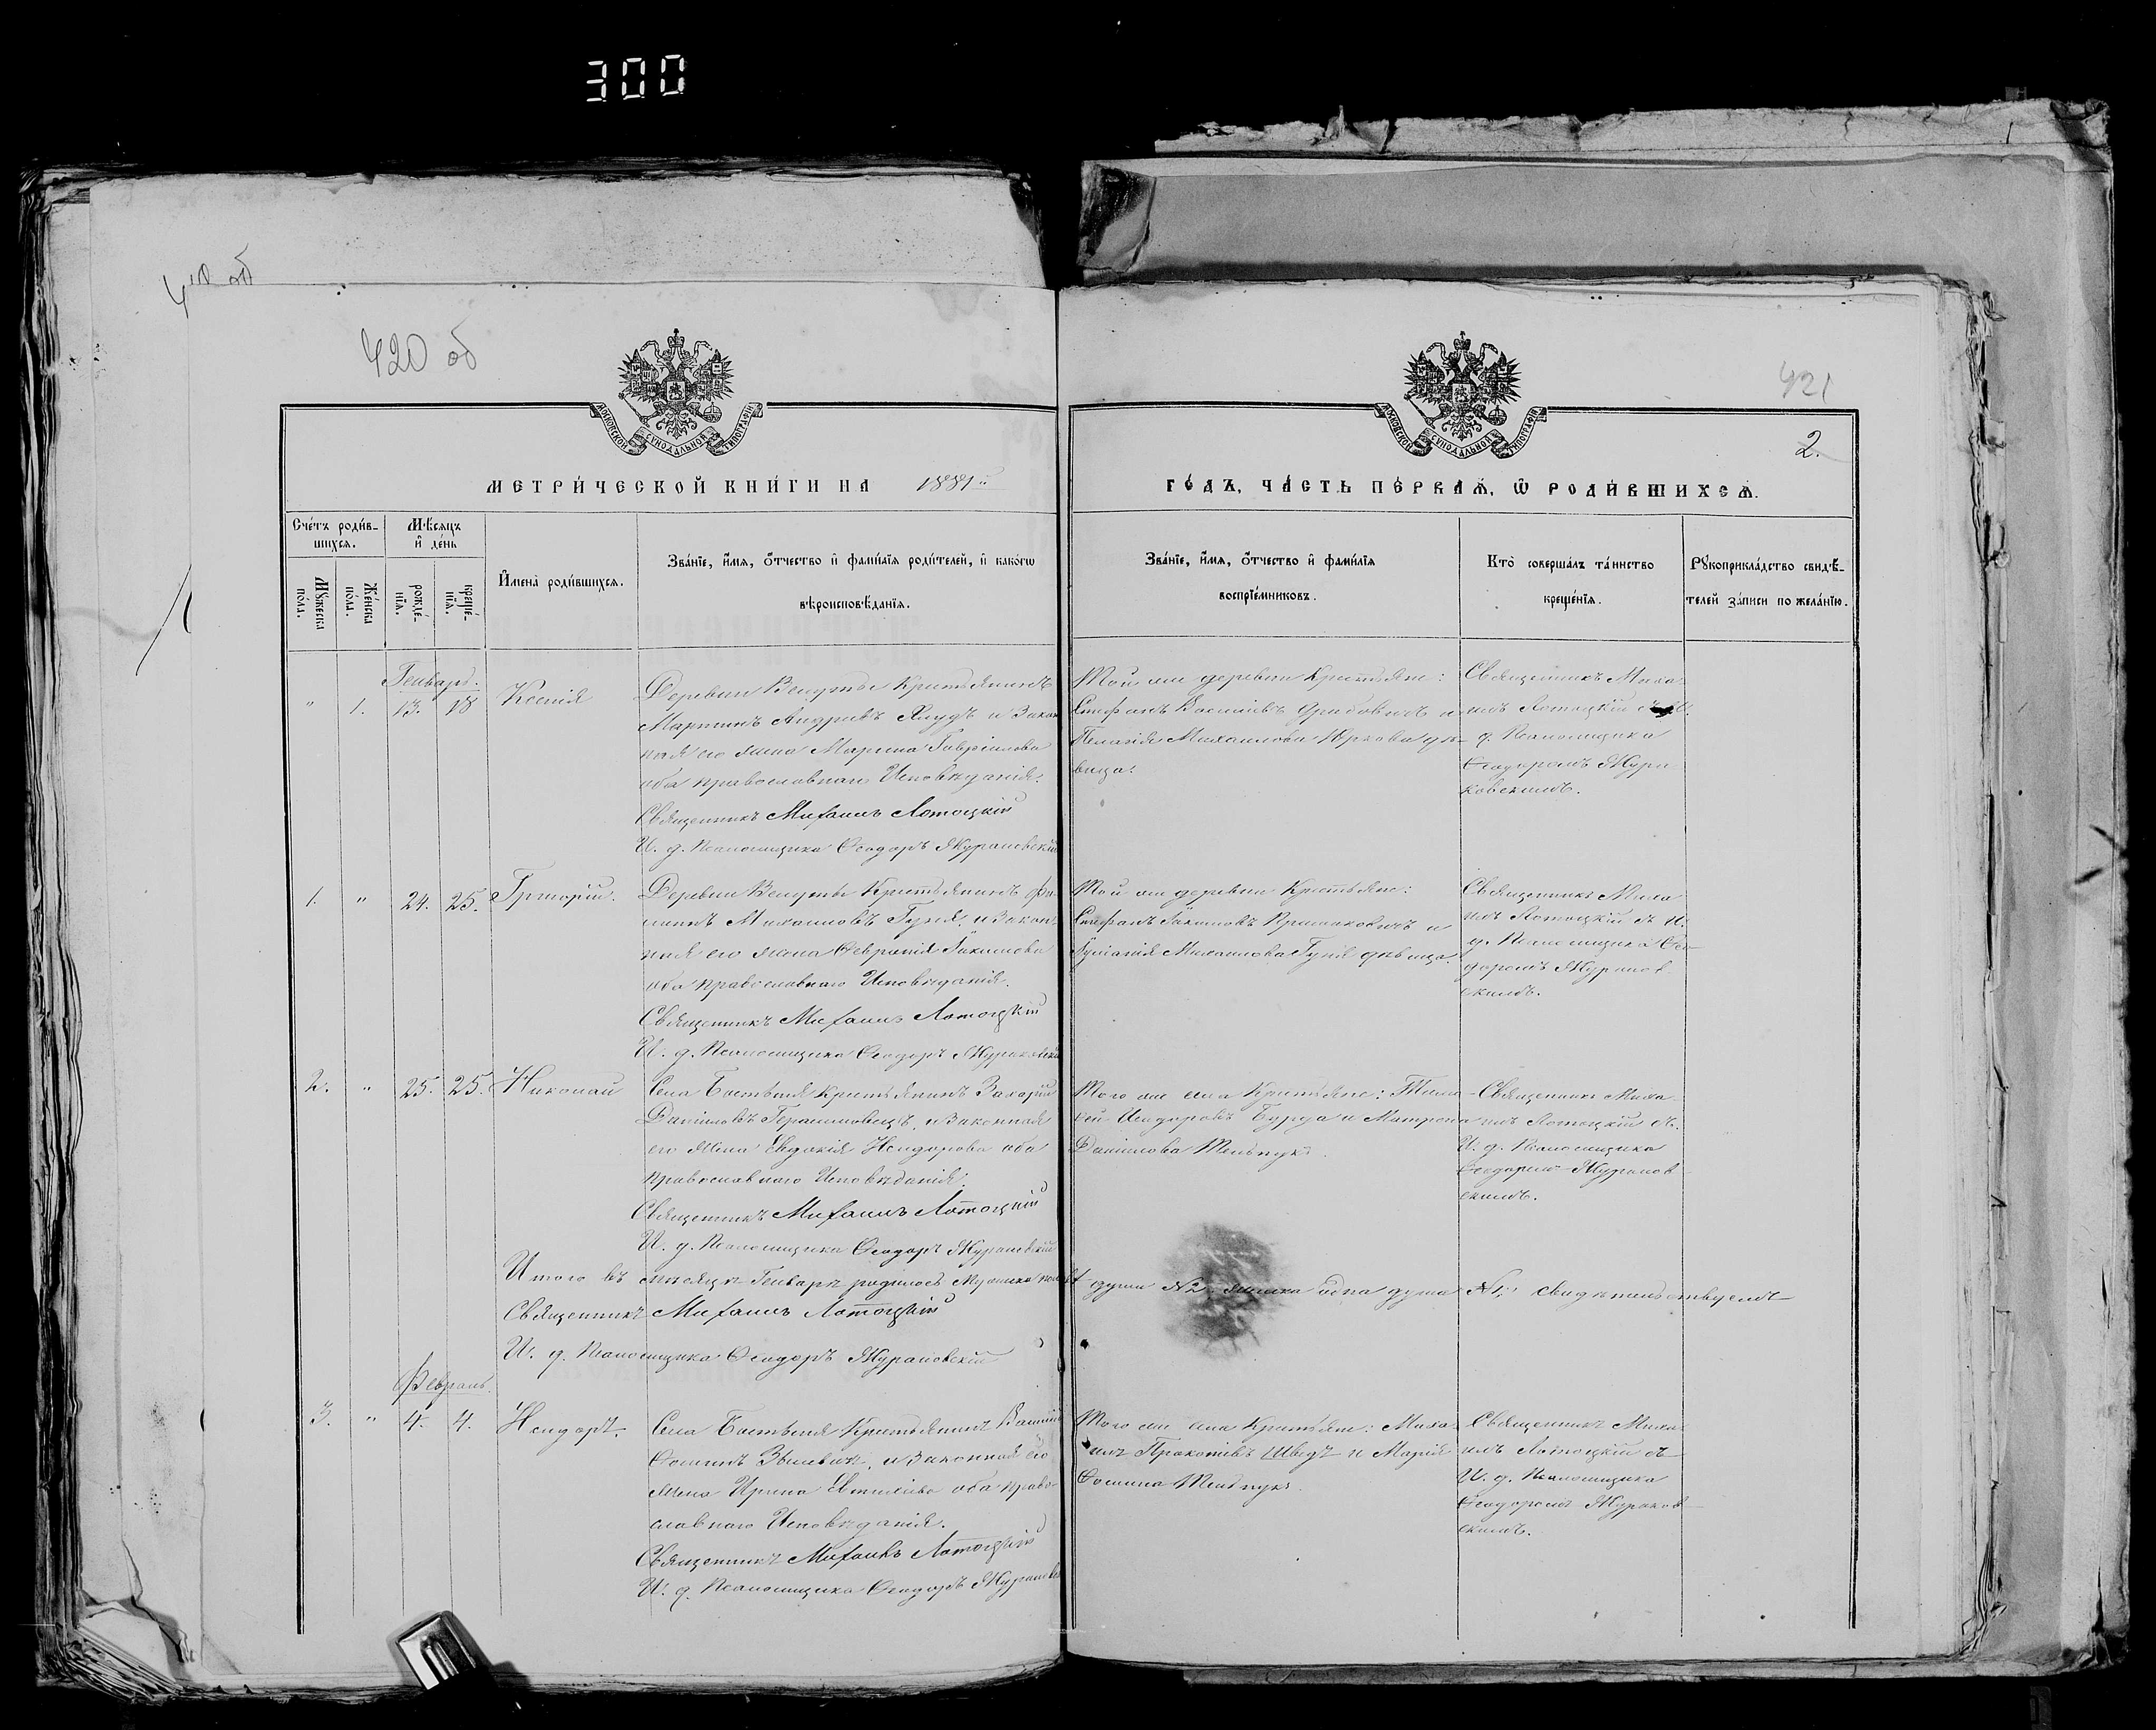 300
418 об
420 об
421
2.
МОСКОВСКОЙ СѴНОДАЛЬНОЙ ТИПОГРАФІИ
МОСКОВСКОЙ СѴНОДАЛЬНОЙ ТИПОГРАФІИ
МЕТРИ́ЧЕСКОЙ КНИ́ГИ НА 1881й
ГО́ДЪ, ЧА́СТЬ ПЕ́РВАѦ, Ѡ҆ РОДИ́ВШИХСѦ.
Сче́тъ роди́в-
шихсѧ.
Мѣ́сѧцъ
и҆ де́нь
Мꙋ́жеска
по́ла.
Же́нска
по́ла.
рожде́-
нїѧ.
креще́-
нїѧ.
И҆мена̀ роди́вшихсѧ.
Зва́нїе, и҆́мѧ, ѻ҆́тчество и҆ фами́лїѧ роди́телей, и҆ како́гѡ
вѣроисповѣ́данїѧ.
Зва́нїе, и҆́мѧ, ѻ҆́тчество и҆ фами́лїѧ
воспрїе́мниковъ.
Кто̀ соверша́лъ та́инство
креще́нїѧ.
Рꙋкоприкла́дство свидѣ́-
телей за́писи по жела́нїю.
Генварь.
" 1. 13. 18 Ксенія
Деревни Велутье Крестьянинъ
Мартинъ Андреевъ и Закон
ная его жена Марина Гавріилова
оба православнаго Исповѣданія.
Священникъ Михаилъ Лотоцкій
И. д. Псаломщика Ѳеодоръ Жураковскій
Той же деревни Крестьяне:
Стефанъ Василіевъ и
Пелагія Михаилова дѣ-
вица.
Священникъ Миха
илъ Лотоцкій съ И.
д. Псаломщика
Ѳеодоромъ Жура
ковскимъ.
1. " 24. 25. Григорій.
Деревни Велутье Крестьянинъ Фи-
липъ Михаиловъ Гуня, и Закон-
ная его жена Февронія Іакимова
оба православнаго Исповѣданія.
Священникъ Михаилъ Лотоцкій
И. д. Псаломщика Ѳеодоръ Жураковскій
Той же деревни Крестьяне:
Стефанъ Іакимовъ и
Іуліанія Михаилова Гуня дѣвица.
Священникъ Миха
илъ Лотоцкій съ И.
д. Псаломщика Ѳео-
доромъ Жураков
скимъ.
2. " 25. 25. Николай
Села Бостынь Крестьянинъ Захарій
Даніиловъ Герасимовецъ, и Законная
его жена Евдокія Исидорова оба
православнаго Исповѣданія.
Священникъ Михаилъ Лотоцкій
И. д. Псаломщика Ѳеодоръ Жураковскій
Того же села Крестьяне: Тимо-
ѳей Исидоровъ Бурда и Матрона
Даніилова Мельнукъ.
Священникъ Миха
илъ Лотоцкій съ
И. д. Псаломщика
Ѳеодоромъ Жураков
скимъ.
Итого въ месяцѣ Генварѣ родилось мужеска пола двѣ души №2 женска одна душа №1, свидѣтельствуемъ
Священникъ Михаилъ Лотоцкій
И. д. Псаломщика Ѳеодоръ Жураковскій
Февраль.
3. " 4. 4. Исидоръ.
Села Бостынь Крестьянинъ
Ѳоминъ и Законная его
жена Ирина оба право-
славнаго Исповѣданія.
Священникъ Михаилъ Лотоцкій
И. д. Псаломщика Ѳеодоръ Жураковск
Того же села Крестьяне: Миха
илъ Прокопіевъ Шведъ и Марія
Ѳомина Мельнукъ.
Священникъ Миха
илъ Лотоцкій съ
И. д. Псаломщика
Ѳеодоромъ Жураков-
скимъ.